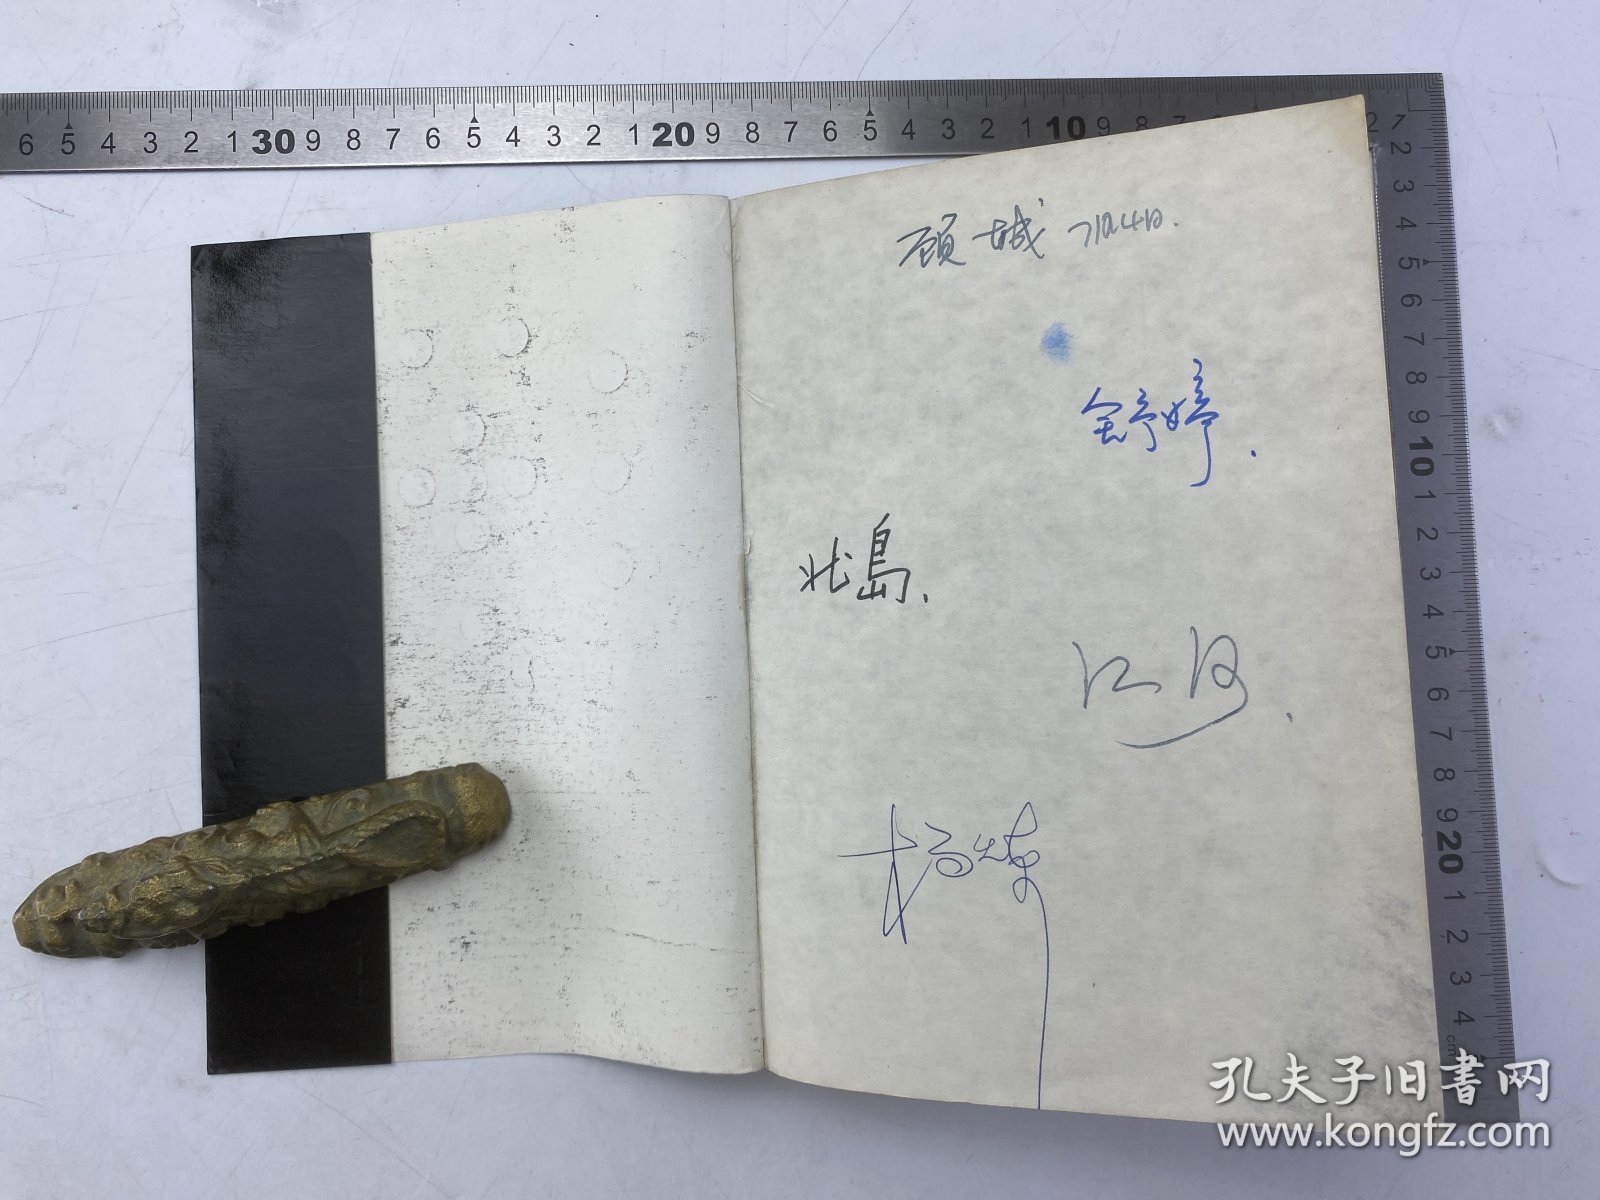 6 5 4 3 2 1 30 9 8 7 6 5 4 3 2 1 20 9 8 7 6 5 4 3 2 1 10 9 8 7
2
1 2 3 4 5 6 7 8 9 10 1 2 3 4 5 6 7 8 9 20 1 2 3 4
cm
顾城
舒婷.
北島.
江河.
杨炼
孔夫子旧書网
www.kongfz.com